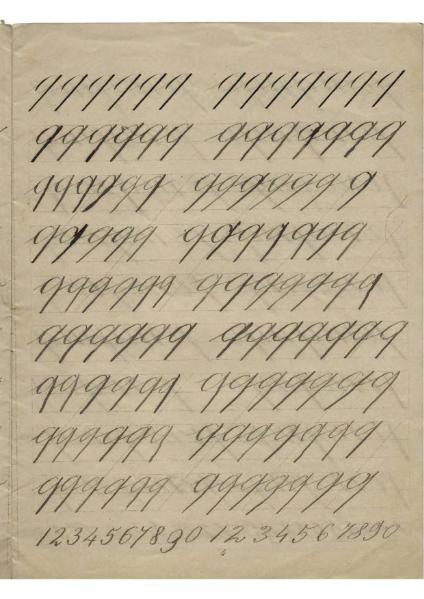 999999 9999999
999999 9999999
999999 9999999
99999 9999999
999999 9999999
999999 9999999
999999 9999999
999999 9999999
999999 9999999
1234567890 1234567890